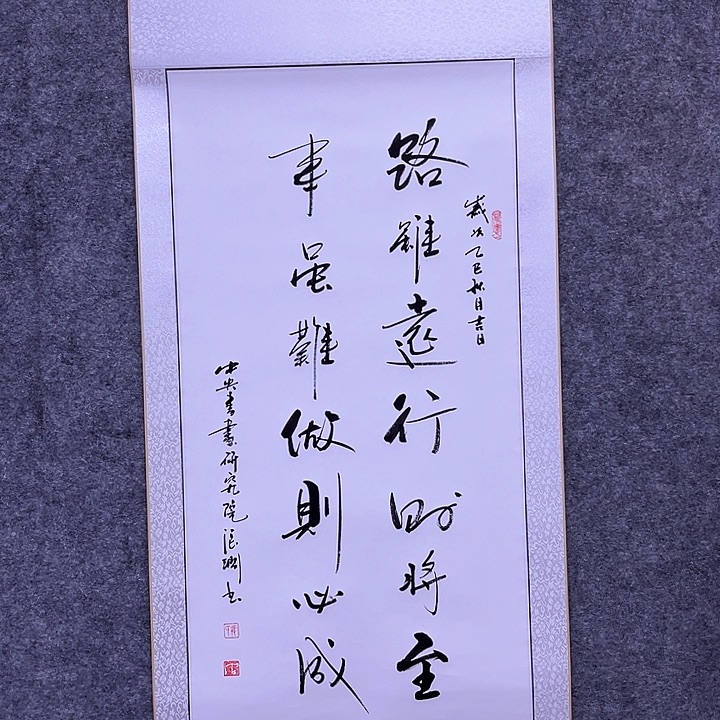 歲次乙巳秋月吉日
路雖遠行则將至
事虽難做則必成
中央書畫研究院 書